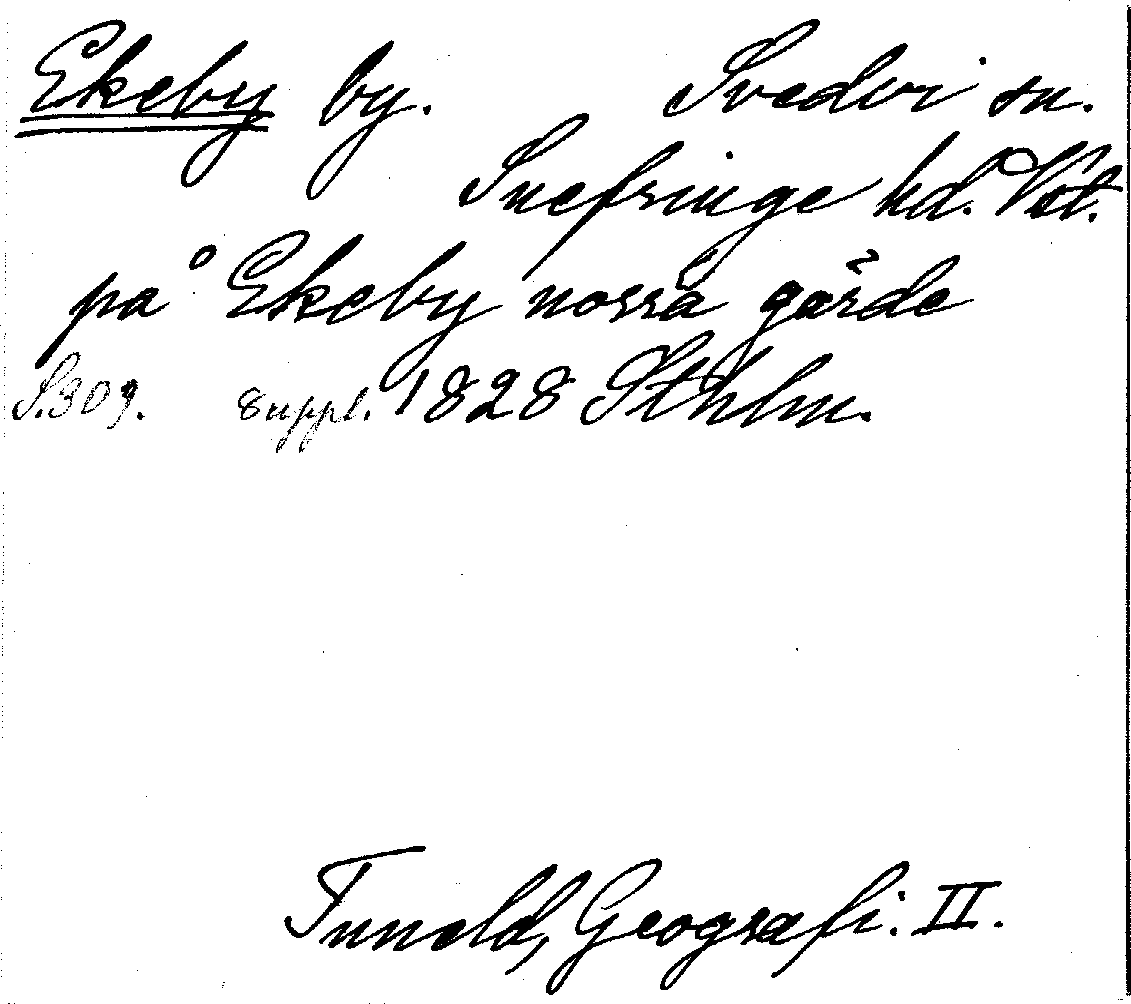 Ekeby by. Svedvi sn.
Snefringe hd. Vstl.
på Ekeby norra gärde
S.309. suppl. 1828 Sthlm.
Tuneld, Geografi. II.